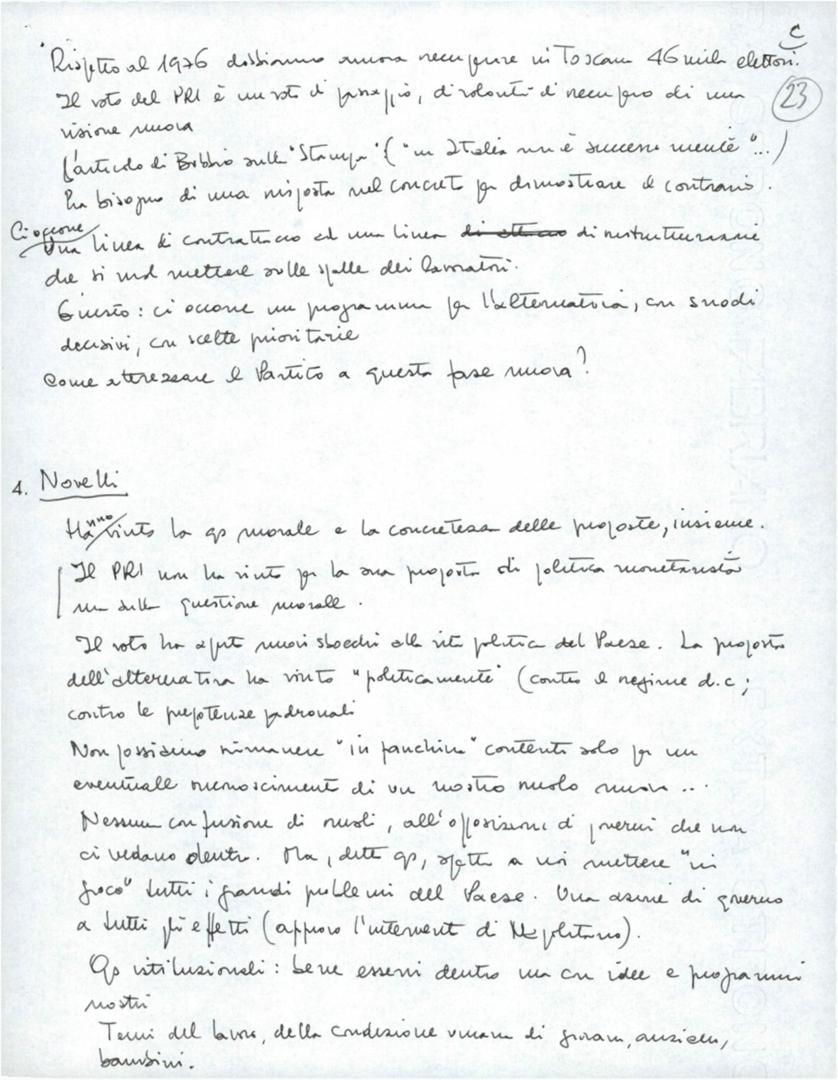 C
23
Rispetto al 1976 dobbiamo ancora recuperare in Toscana 46 mila elettori.
Il voto del PRI è un voto di passaggio, di volontà di recupero di una
visione nuova
L'articolo di Bobbio sulla "Stampa" ("in Italia non è successo niente"...)
ha bisogno di una risposta nel concreto per dimostrare il contrario.
Ci occorre
Una linea di contrattacco ed una linea di ristrutturazione
che si vuol mettere sulle spalle dei lavoratori.
Questo: ci occorre un programma per l'alternativa, con snodi
decisivi, con scelte prioritarie
Come attrezzare il Partito a questa fase nuova?
4. Novelli
Hanno vinto la qs morale e la concretezza delle proposte, insieme.
Il PRI non ha vinto per la sua proposta di politica monetarista
ma sulla questione morale.
Il voto ha aperto nuovi sbocchi alla vita politica del Paese. La proposta
dell'alternativa ha vinto "politicamente" (contro il regime d.c;
contro le prepotenze padronali
Non possiamo rimanere "in panchina" contenti solo per un
eventuale riconoscimento di un nostro ruolo nuovo ...
Nessuna confusione di ruoli, all'opposizione di governi che non
ci vedano dentro. Ma, detto qs, spetta a noi mettere "in
gioco" tutti i grandi problemi del Paese. Una azione di governo
a tutti gli effetti (approvo l'intervento di Napolitano).
Qs istituzionali: bene esserci dentro ma con idee e programmi
nostri
Temi del lavoro, della condizione umana di giovani, anziani,
bambini.